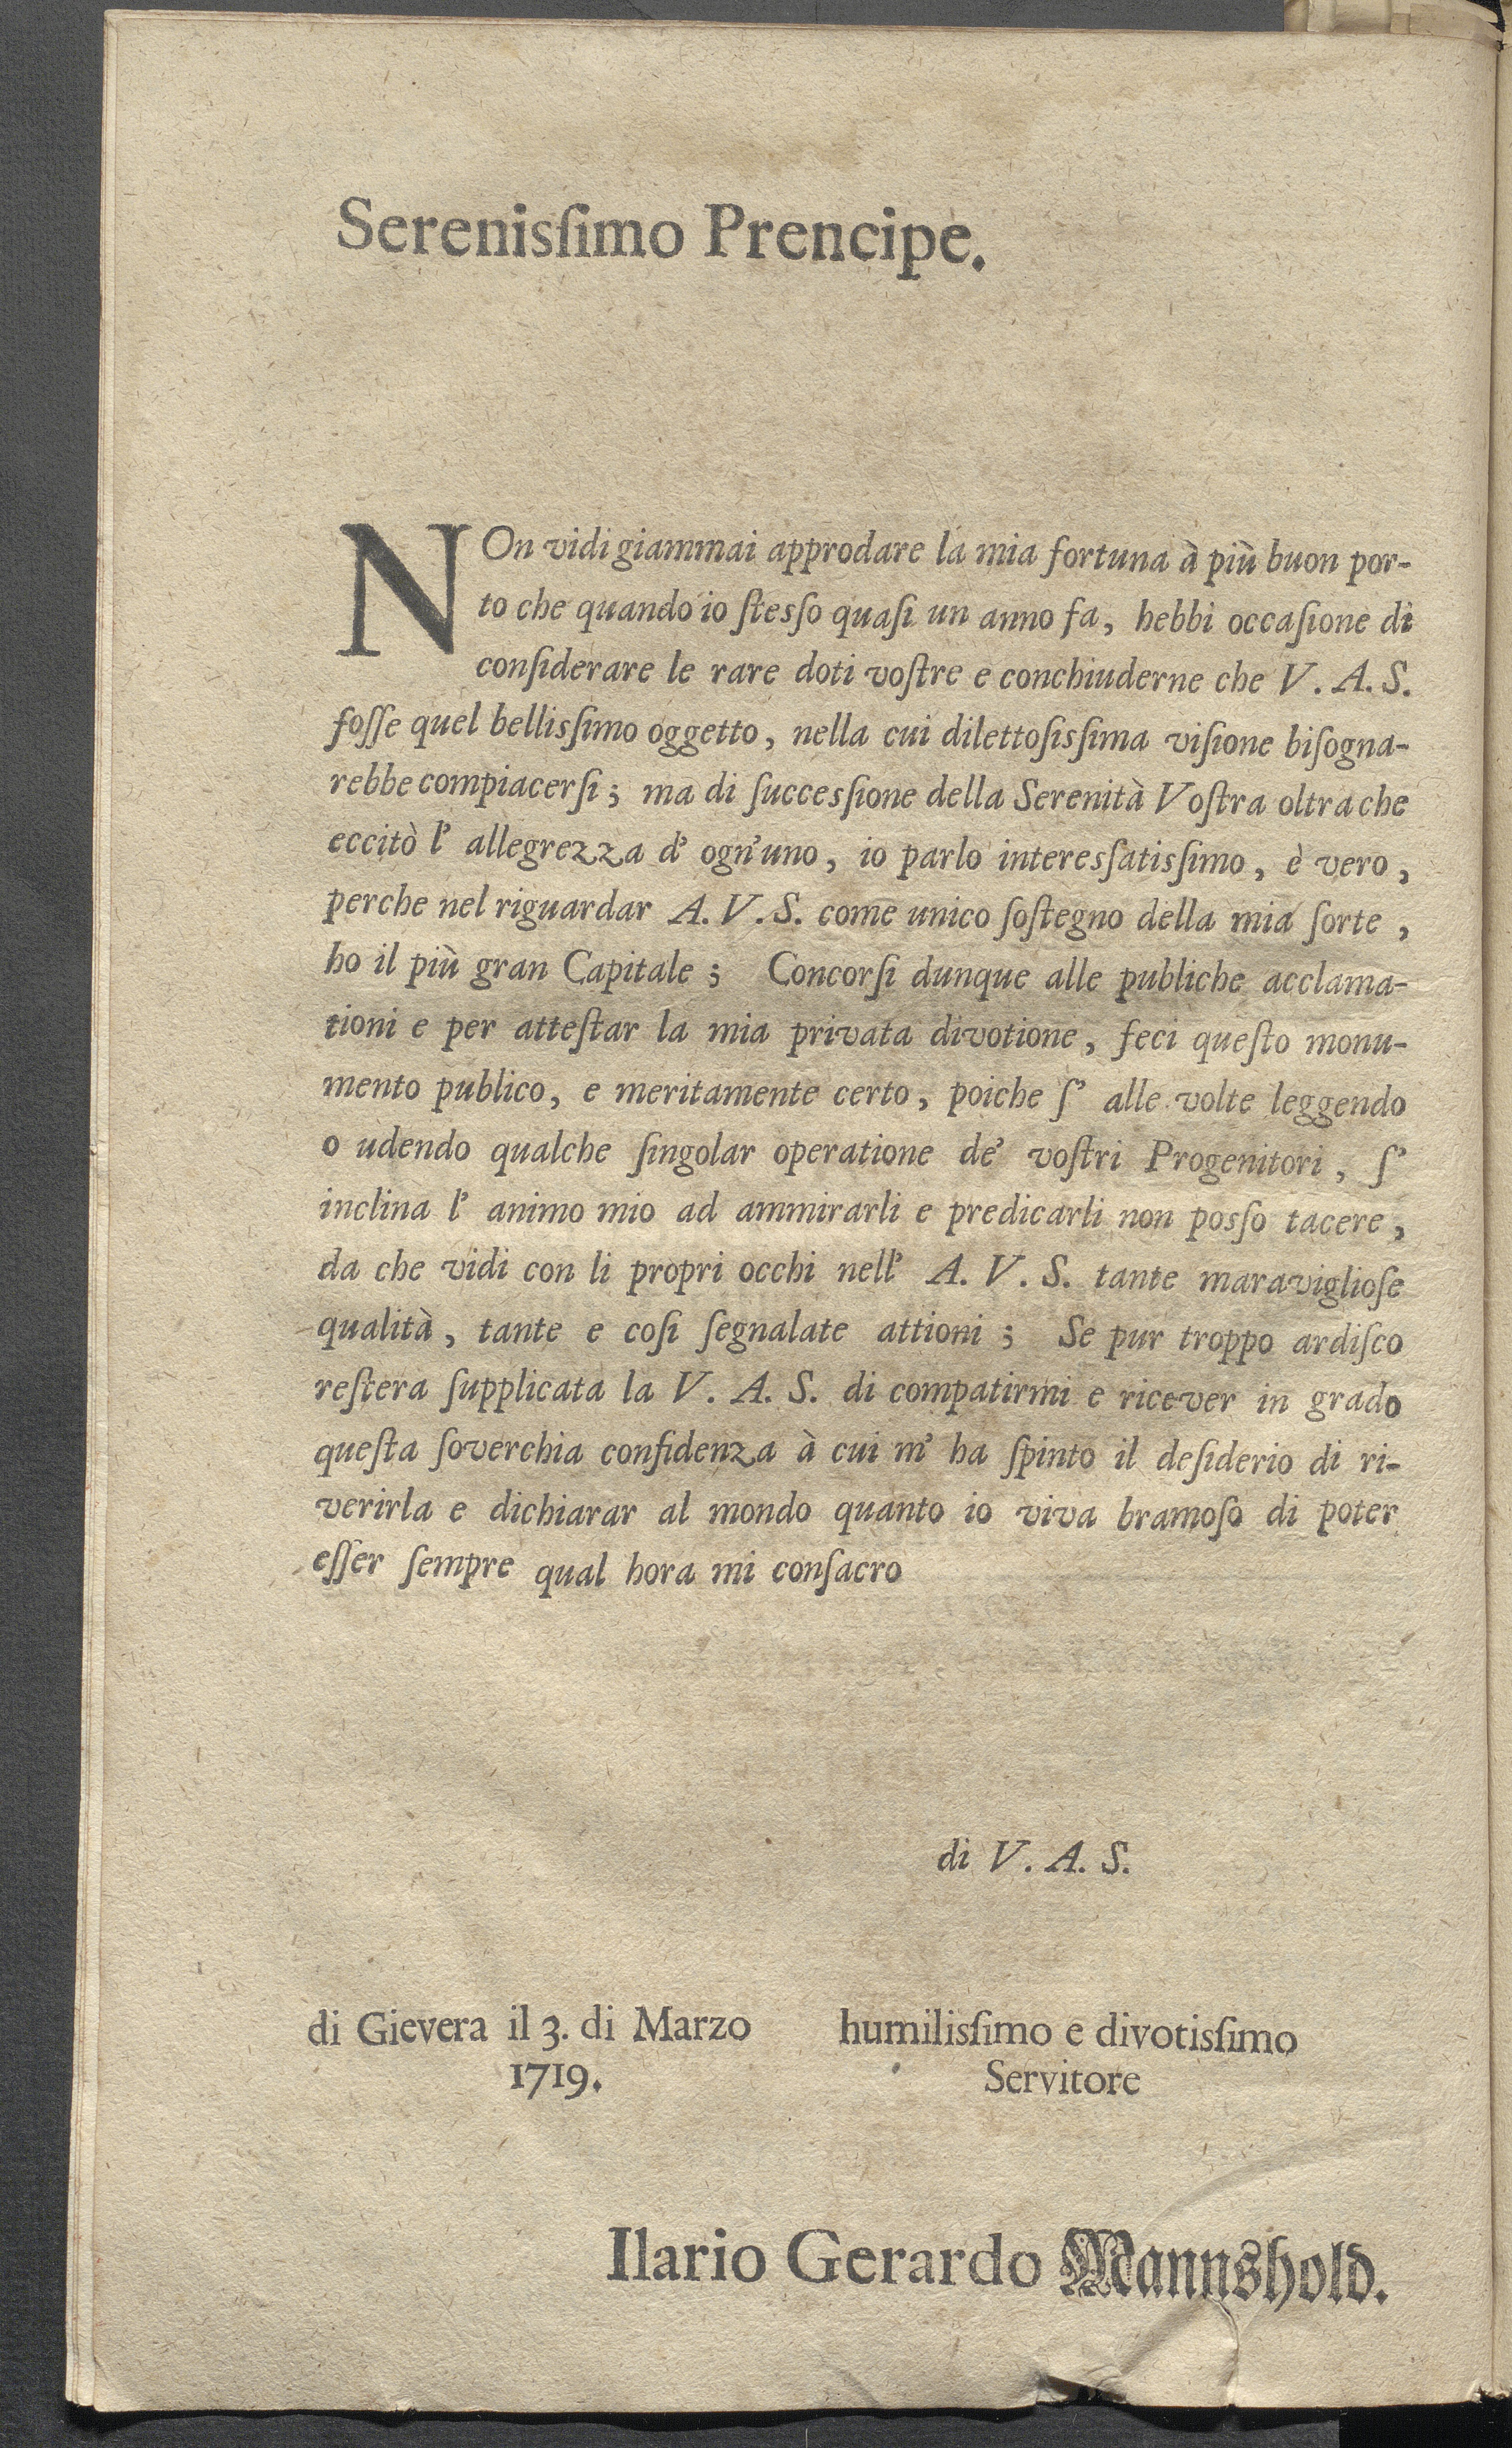 Serenisſimo Prencipe.
NOn vidi giammai approdare la mia fortuna à più buon por-
to che quando io ſtesſo quaſi un anno fa, hebbi occaſione di
conſiderare le rare doti voſtre e conchiuderne che V. A. S.
foſſe quel bellisſimo oggetto, nella cui dilettoſisſima viſione biſogna-
rebbe compiacerſi; ma di ſuccesſione della Serenità Voſtra oltrache
eccitò l' allegrezza d' ogn'uno, io parlo interesſatisſimo, è vero,
perche nel riguardar A. V. S. come unico ſoſtegno della mia ſorte,
ho il più gran Capitale; Concorſi dunque alle publiche acclama-
tioni e per atteſtar la mia privata divotione, feci queſto monu-
mento publico, e meritamente certo, poiche ſ' alle volte leggendo
o udendo qualche ſingolar operatione de' voſtri Progenitori, ſ'
inclina l' animo mio ad ammirarli e predicarli non posſo tacere,
da che vidi con li propri occhi nell' A. V. S. tante maraviglioſe
qualità, tante e coſi ſegnalate attioni; Se pur troppo ardiſco
reſtera ſupplicata la V. A. S. di compatirmi e ricever in grado
queſta ſoverchia confidenza à cui m' ha ſpinto il deſiderio di ri-
verirla e dichiarar al mondo quanto io viva bramoſo di poter
eſſer ſempre qual hora mi conſacro
di V. A. S.
di Gievera il 3. di Marzo
1719.
humilisſimo e divotisſimo
Servitore
Ilario Gerardo Mannshold.